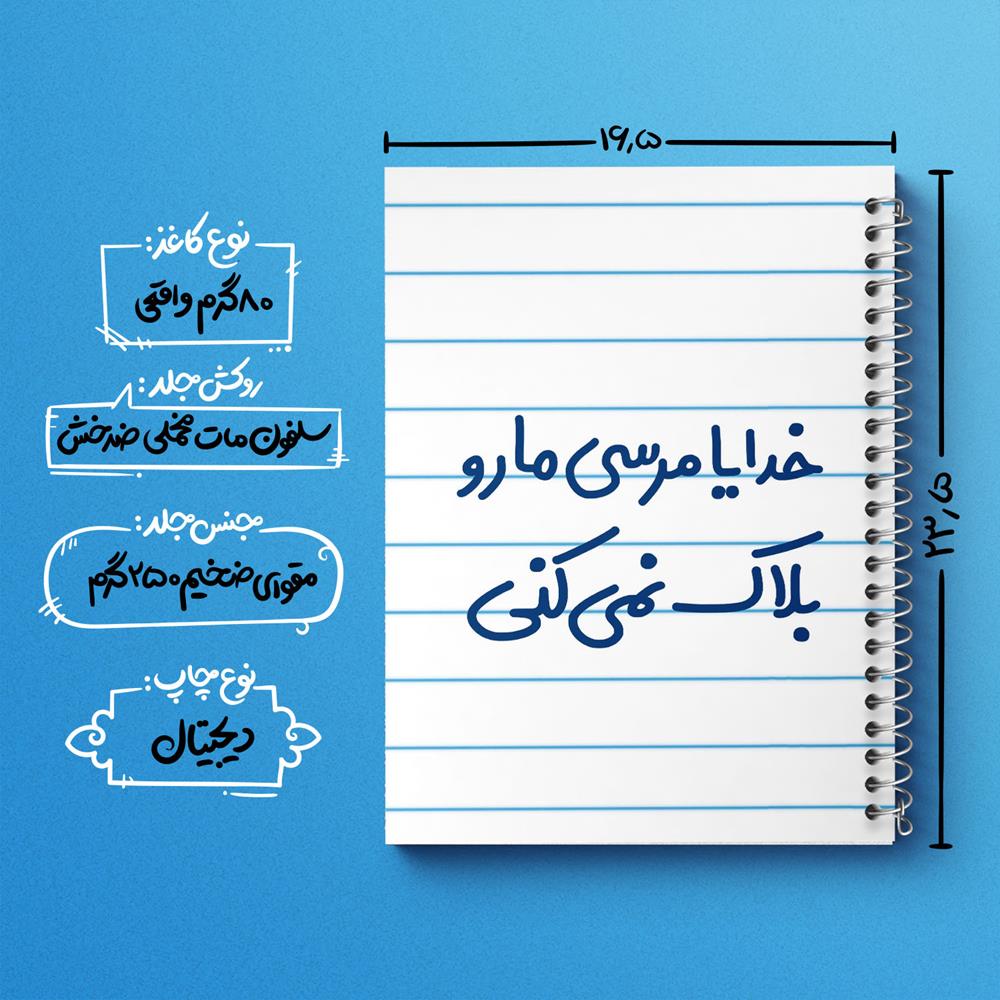 ۱۶٫۵
۲۳٫۵
خدایا مرسی مارو
بلاک نمی‌کنی
نوع کاغذ:
۸۰ گرم واقعی
روکش جلد:
سلفون مات مخملی ضدخش
جنس جلد:
مقوای ضخیم ۲۵۰ گرم
نوع چاپ:
دیجیتال